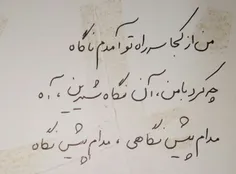 من از کجا سر راه تو آمدم ناگاه
چه کرد با من، آن نگاه شیرین، آه
مدام پیش نگاهی، مدام پیش نگاه